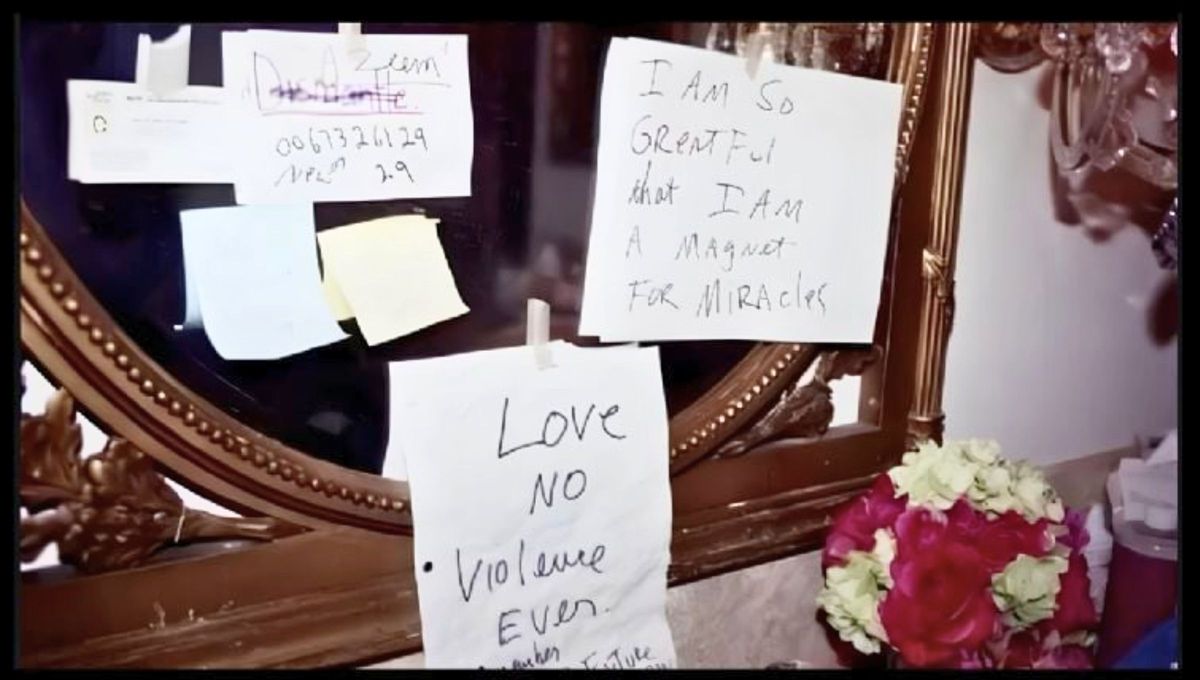 Azeem
0067326129
I AM SO
GREATFul
that I AM
A MAgnet
FOR MIRAcles
LOVE
NO
Violence
EVER.
Future